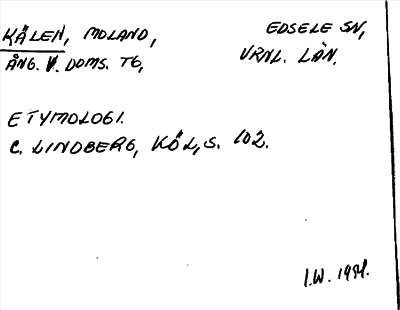 KÄLEN, MOLAND, EDSELE SN,
ÅNG. V. DOMS. TG, VRNL. LÄN.
ETYMOLOGI.
C. LINDBERG, KÖL, S. 102.
I.W. 1981.